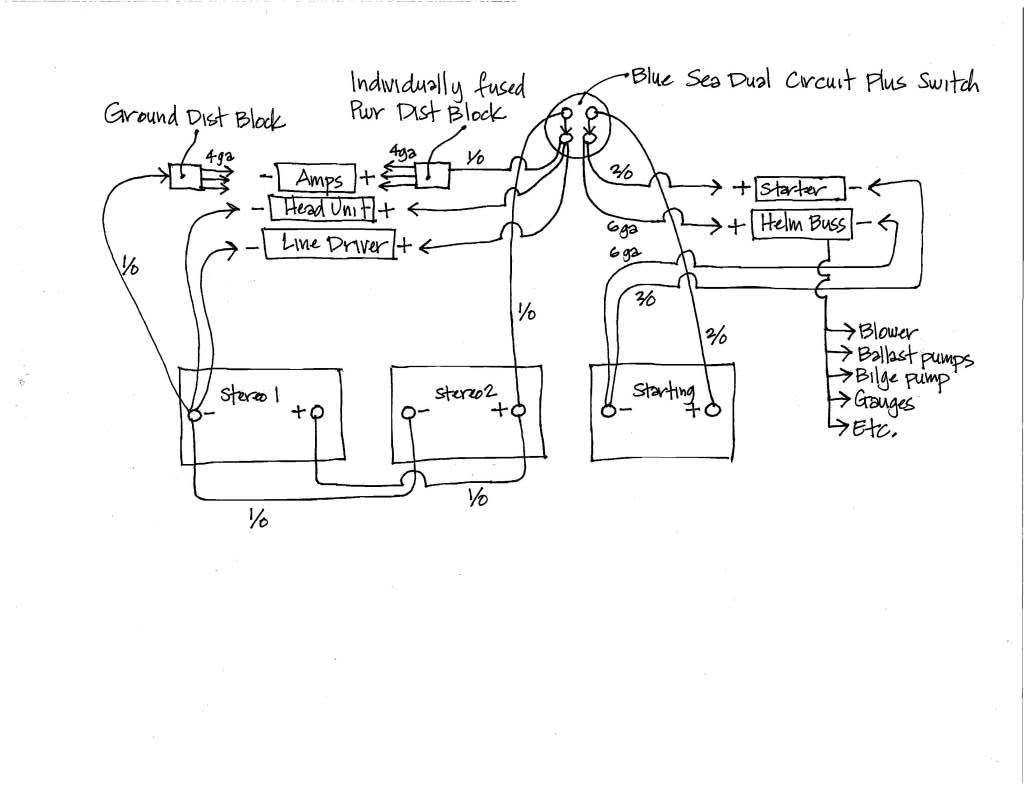 Blue Sea Dual Circuit Plus Switch
Individually fused
Pwr Dist Block
Ground Dist Block
4ga
4ga
1/0
- Amps +
- Head Unit +
- Line Driver +
2/0
+ Starter -
6ga
+ Helm Buss -
6ga
2/0
1/0
1/0
2/0
Blower
Ballast pumps
Bilge pump
Gauges
Etc.
Stereo 1
- +
Stereo 2
- +
Starting
- +
1/0
1/0